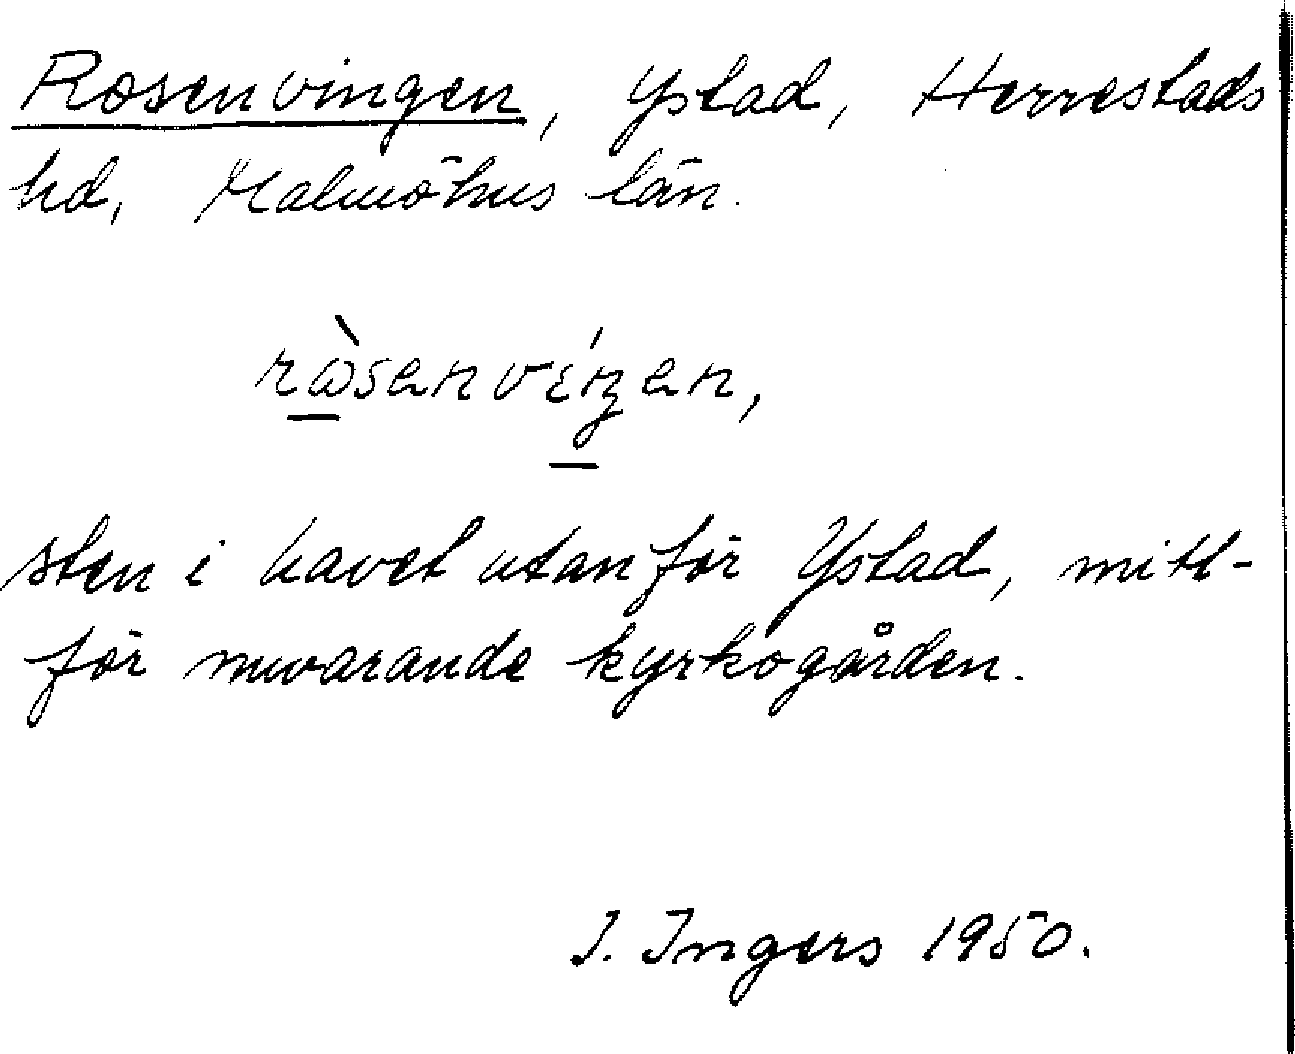 Rosenvingen, Ystad, Herrestads
hd, Malmöhus län.
rωsenviŋen,
sten i havet utanför Ystad, mitt-
för nuvarande kyrkogården.
I. Ingers 1950.